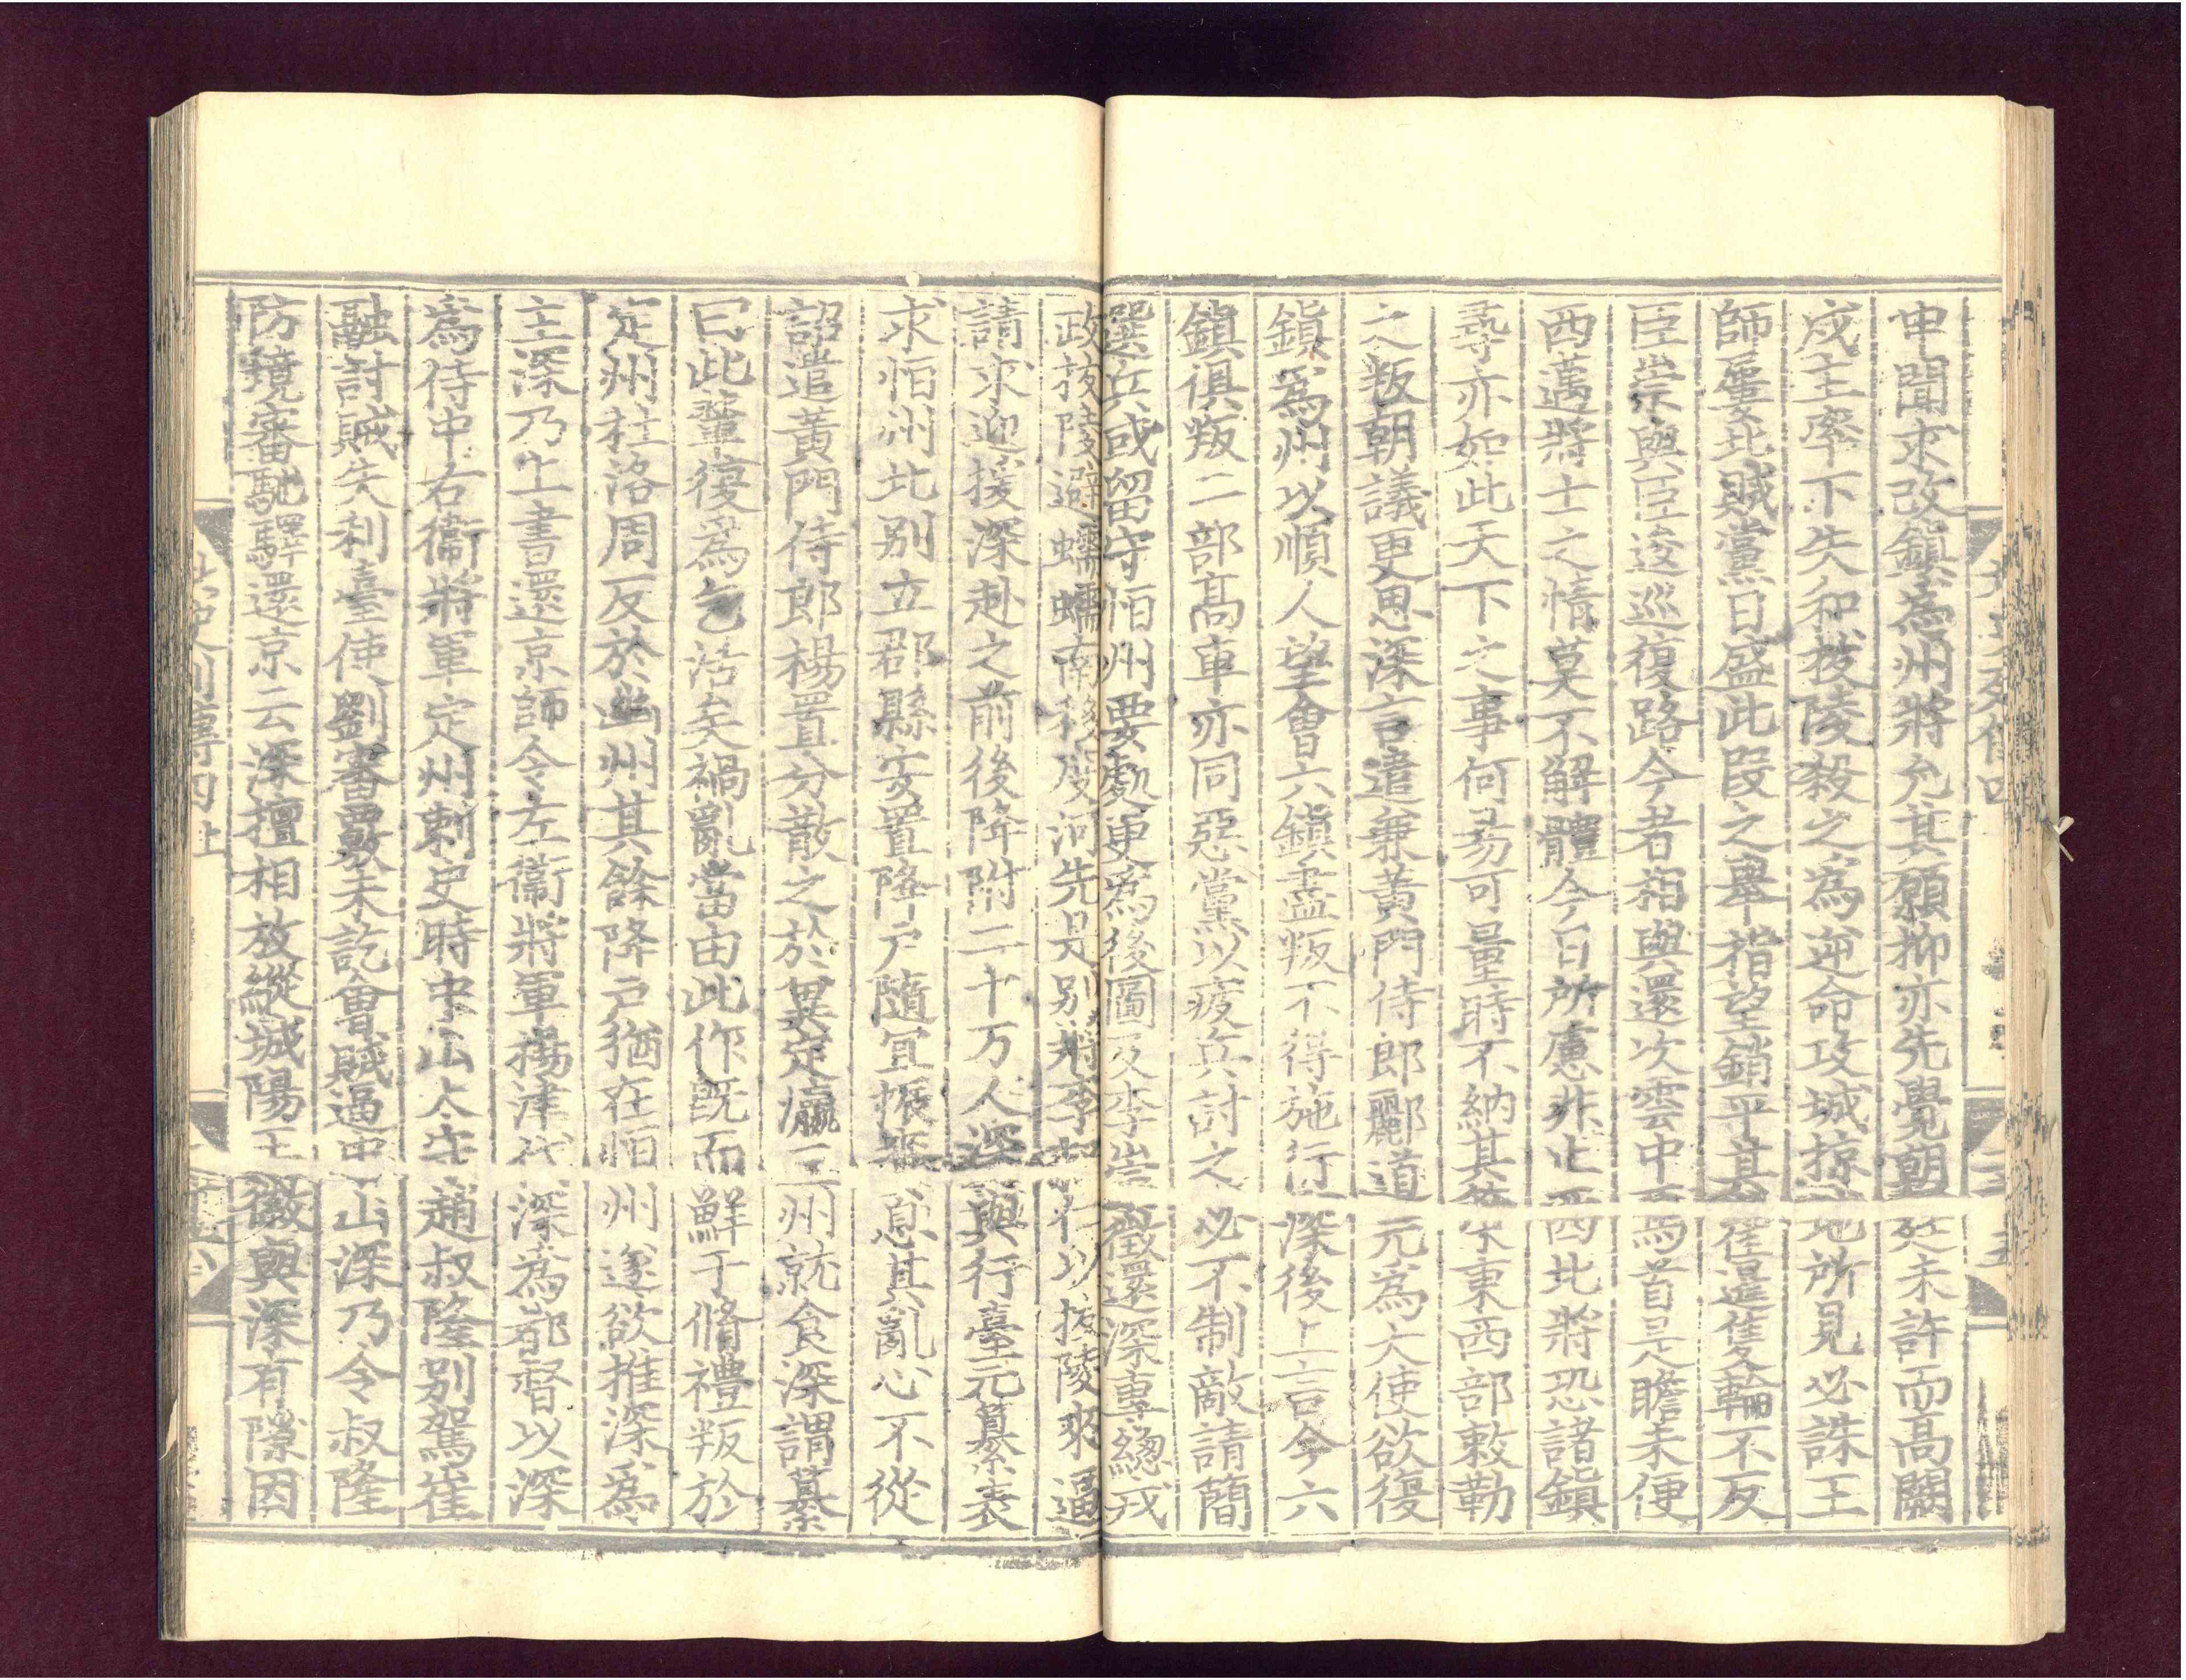 申聞求改鎮爲州將允其願抑亦先覺朝廷未許而高闕
戍主率下失和拔陵殺之爲逆命攻城掠地所見必誅王
師屢北賊黨日盛此段之舉指望銷平其崔暹隻輪不反
臣崇與臣逡巡復路今者相與還次雲中馬首是瞻未便
西邁將士之情莫不解體今日所慮非止西北將恐諸鎮
尋亦如此天下之事何易可量時不納其策東西部敕勒
之叛朝議更思深言遣兼黃門侍郎酈道元爲大使欲復
鎮爲州以順人望會六鎮盡叛不得施行深後上言今六
鎮俱叛二部高車亦同惡黨以疲兵討之必不制敵請簡
選兵或留守恒州要處更爲後圖及李崇徵還深專緫戎
政拔陵避蠕蠕南移度河先是別將李叔仁以拔陵來逼
請求迎援深赴之前後降附二十万人深與行臺元纂表
求恒州北別立郡縣安置降戶隨宜振賑息其亂心不從
詔遣黃門侍郎楊置分散之於冀定瀛三州就食深謂纂
曰此輩復爲乞活矣禍亂當由此作旣而鮮于脩禮叛於
定州杜洛周反於幽州其餘降戶猶在恒州遂欲推深爲
主深乃上書還京師令左衞將軍楊津代深爲都督以深
爲侍中右衞將軍定州刺史時中山太守趙叔隆別駕崔
融討賊失利臺使劉審覈未訖會賊逼中山深乃令叔隆
防境審馳驛還京云深擅相放縱城陽王徽與深有隙因
北史列傳四上